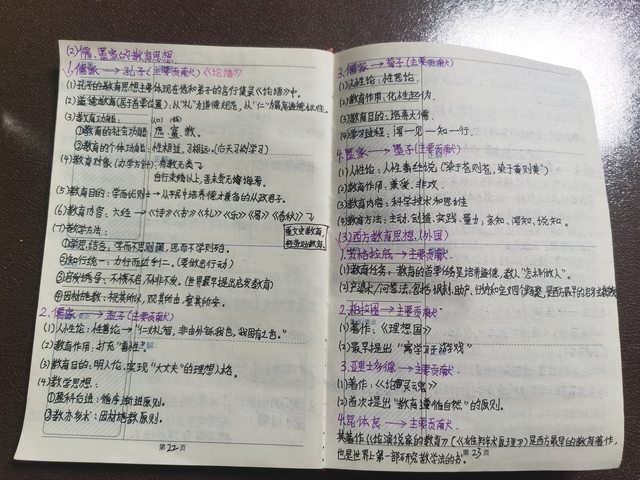 (2)儒、墨家的教育思想
1.儒家→孔子(主要贡献)《论语》
(1)孔子的教育思想主要体现在他和弟子的言行集录《论语》中。
(2)道德教育(居于首要位置):从"礼"为道德规范,从"仁"为最高道德标准。
(3)教育功能: 人口 (精)
①教育的社会功能:庶、富、教。
②教育的个体功能:性相近,习相远。(后天习得学习)
(4)教育对象(办学方针):有教无类了
自行束脩以上,吾未尝无悔诲焉。
(5)教育目的:学而优则士→从平民中培养德才兼备的从政君子。
(6)教育内容:六经→《诗》《书》《礼》《乐》《易》《春秋》了
(7)教学方法: 重文史教育,
轻劳动教育。
①学思结合:学而不思则罔,思而不学则殆。
②知行统一:力行而近乎仁。(要做出行动)
③启发诱导:不愤不启,不悱不发。(世界最早提出启发教育)
④因材施教:视其所以,观其所由,察其所安。
2.儒家→孟子(主要贡献)
(1)人性论:性善论→"仁义礼智,非由外铄我也,我固有之也。"
(2)教育作用:扩充"善性"。
(3)教育目的:明人伦,实现"大丈夫"的理想人格。
(4)教学思想:
①盈科后进:循序渐进原则。
②教亦多术:因材施教原则。
第22页
3.儒家→荀子(主要贡献)
(1)人性论:性恶论。
(2)教育作用:化性起伪。
(3)教育目的:培养大儒。
(4)学习过程:闻—见—知—行。
4.墨家→墨子(主要贡献)
(1)人性论:人性素丝说("染于苍则苍,染于黄则黄")
(2)教育作用:兼爱、非攻。
(3)教育内容:科学技术和思维
(4)教育方法:主动、创造、实践、量力;亲知、闻知、说知。
(3)西方教育思想(外国)
1.苏格拉底→主要贡献.
(1)教育任务:教育的首要任务是培养道德,教人"怎样做人"。
(2)产婆术/问答法:包括讽刺、助产、归纳和定义四个步骤,是西方最早的启发式教学
2.柏拉图→主要贡献.
(1)著作:《理想国》
(2)最早提出"寓学习于游戏"
3.亚里士多德→主要贡献
(1)著作:《论灵魂》
(2)首次提出"教育遵循自然"的原则。
4.昆体良→主要贡献.
其著作《论演说家的教育》(《雄辩术原理》)是西方最早的教育著作,
也是世界上第一部研究教学法的书。
第23页